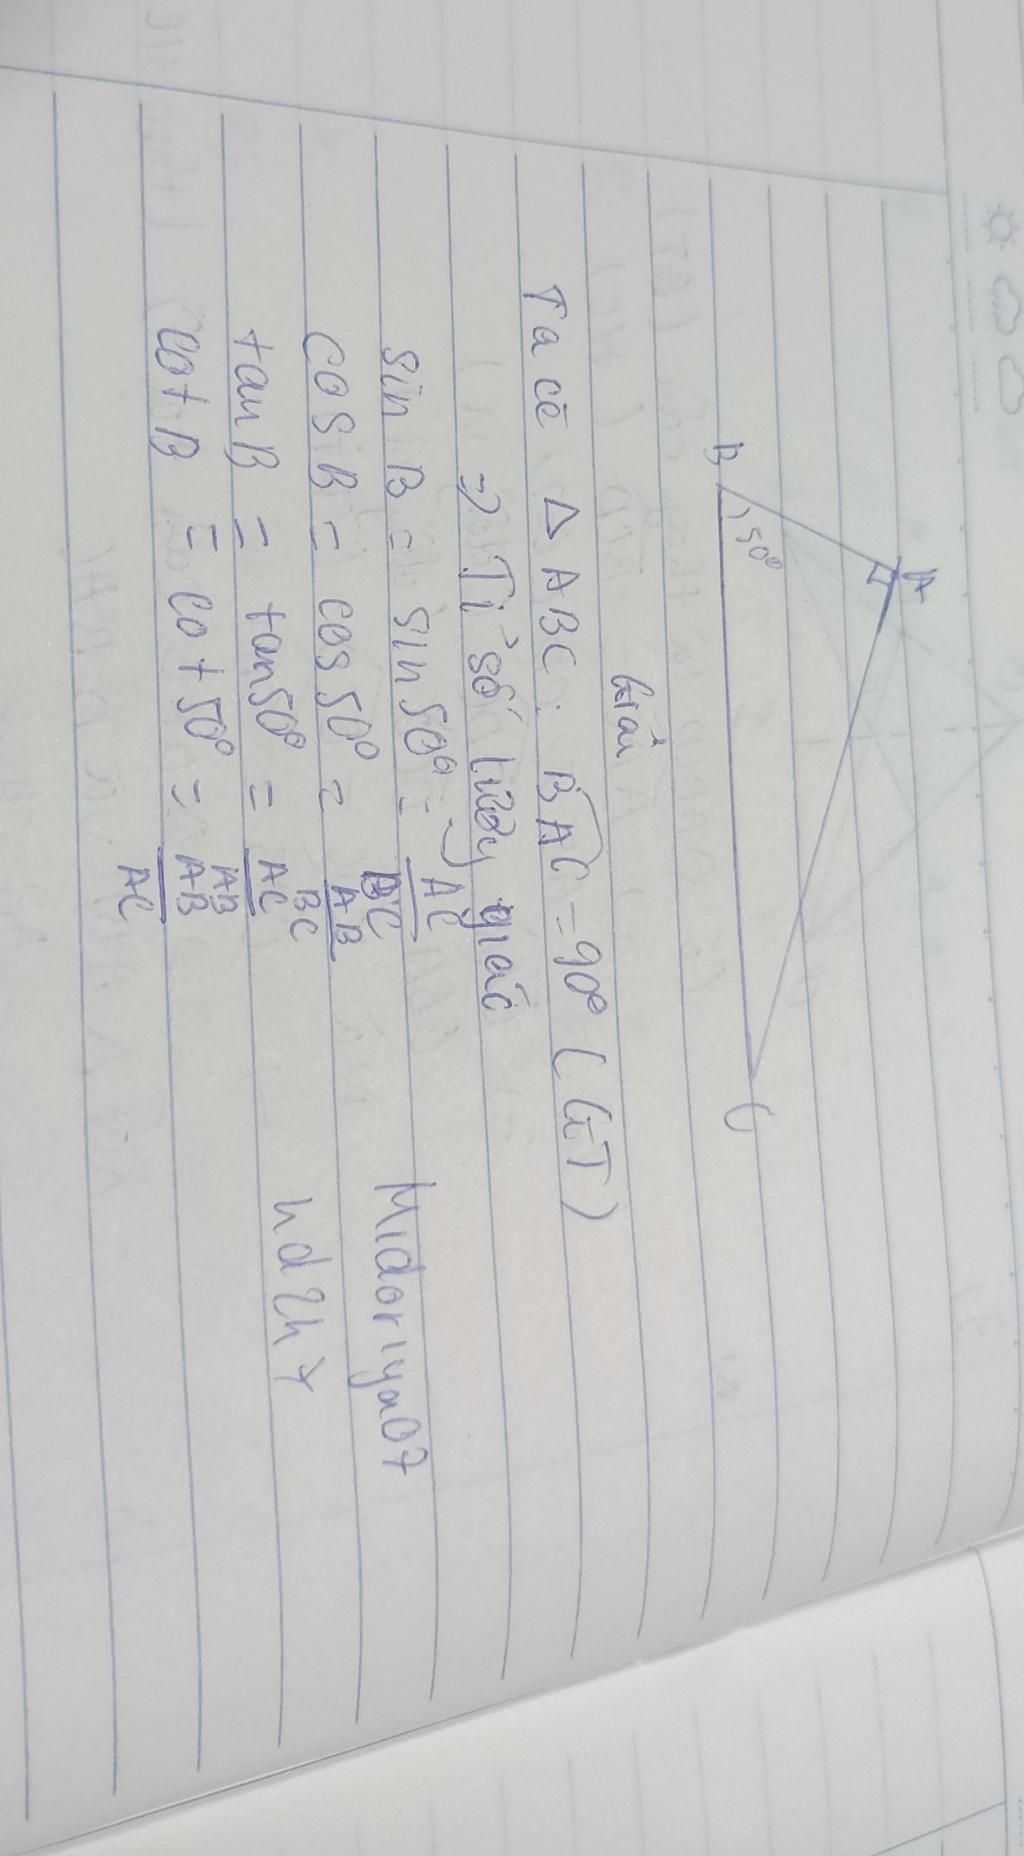 A
B
50°
C
Giải
Ta có Δ ABC: BAC = 90° (GT)
=> Tỉ số lượng giác
sin B = sin 50° = AC/BC
cos B = cos 50° = AB/BC
tan B = tan 50° = AC/AB
cot B = cot 50° = AB/AC
Midoriya07
hd2h7